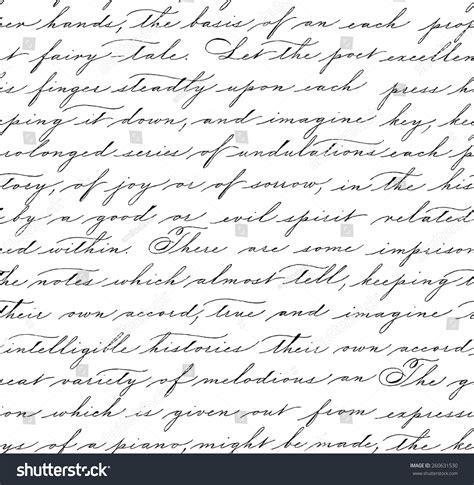 er hands, the basis of an each pro
t fairy-tale. Let the poet excellen
is finger steadily upon each press h
ping it down, and imagine key, ke
rolonged series of undulations each p
tory, of joy or of sorrow, in the his
by a good or evil spirit related
ed within. There are some imprison
he notes which almost tell, keeping t
heir own accord, true and imagine
intelligible histories their own accord
reat variety of melodious an The g
ion which is given out from express
ys of a piano, might be made, the ke
shutterstock
IMAGE ID: 260631530
www.shutterstock.com